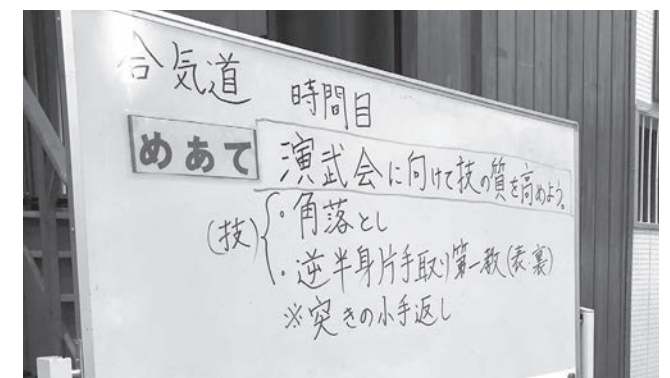 合気道 時間目
めあて 演武会に向けて技の質を高めよう。
(技) ・角落とし
・逆半身片手取り第一教(表・裏)
※突きの小手返し